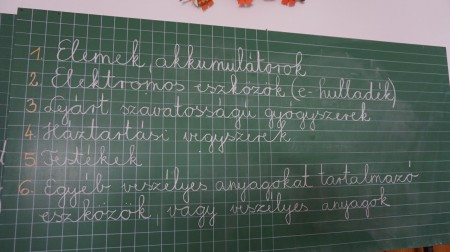 1 Elemek, akkumulátorok
2. Elektromos eszközök (e-hulladék)
3. Lejárt szavatosságú gyógyszerek
4. Háztartási vegyszerek
5. Festékek
6. Egyéb veszélyes anyagokat tartalmazó
eszközök, vagy veszélyes anyagok